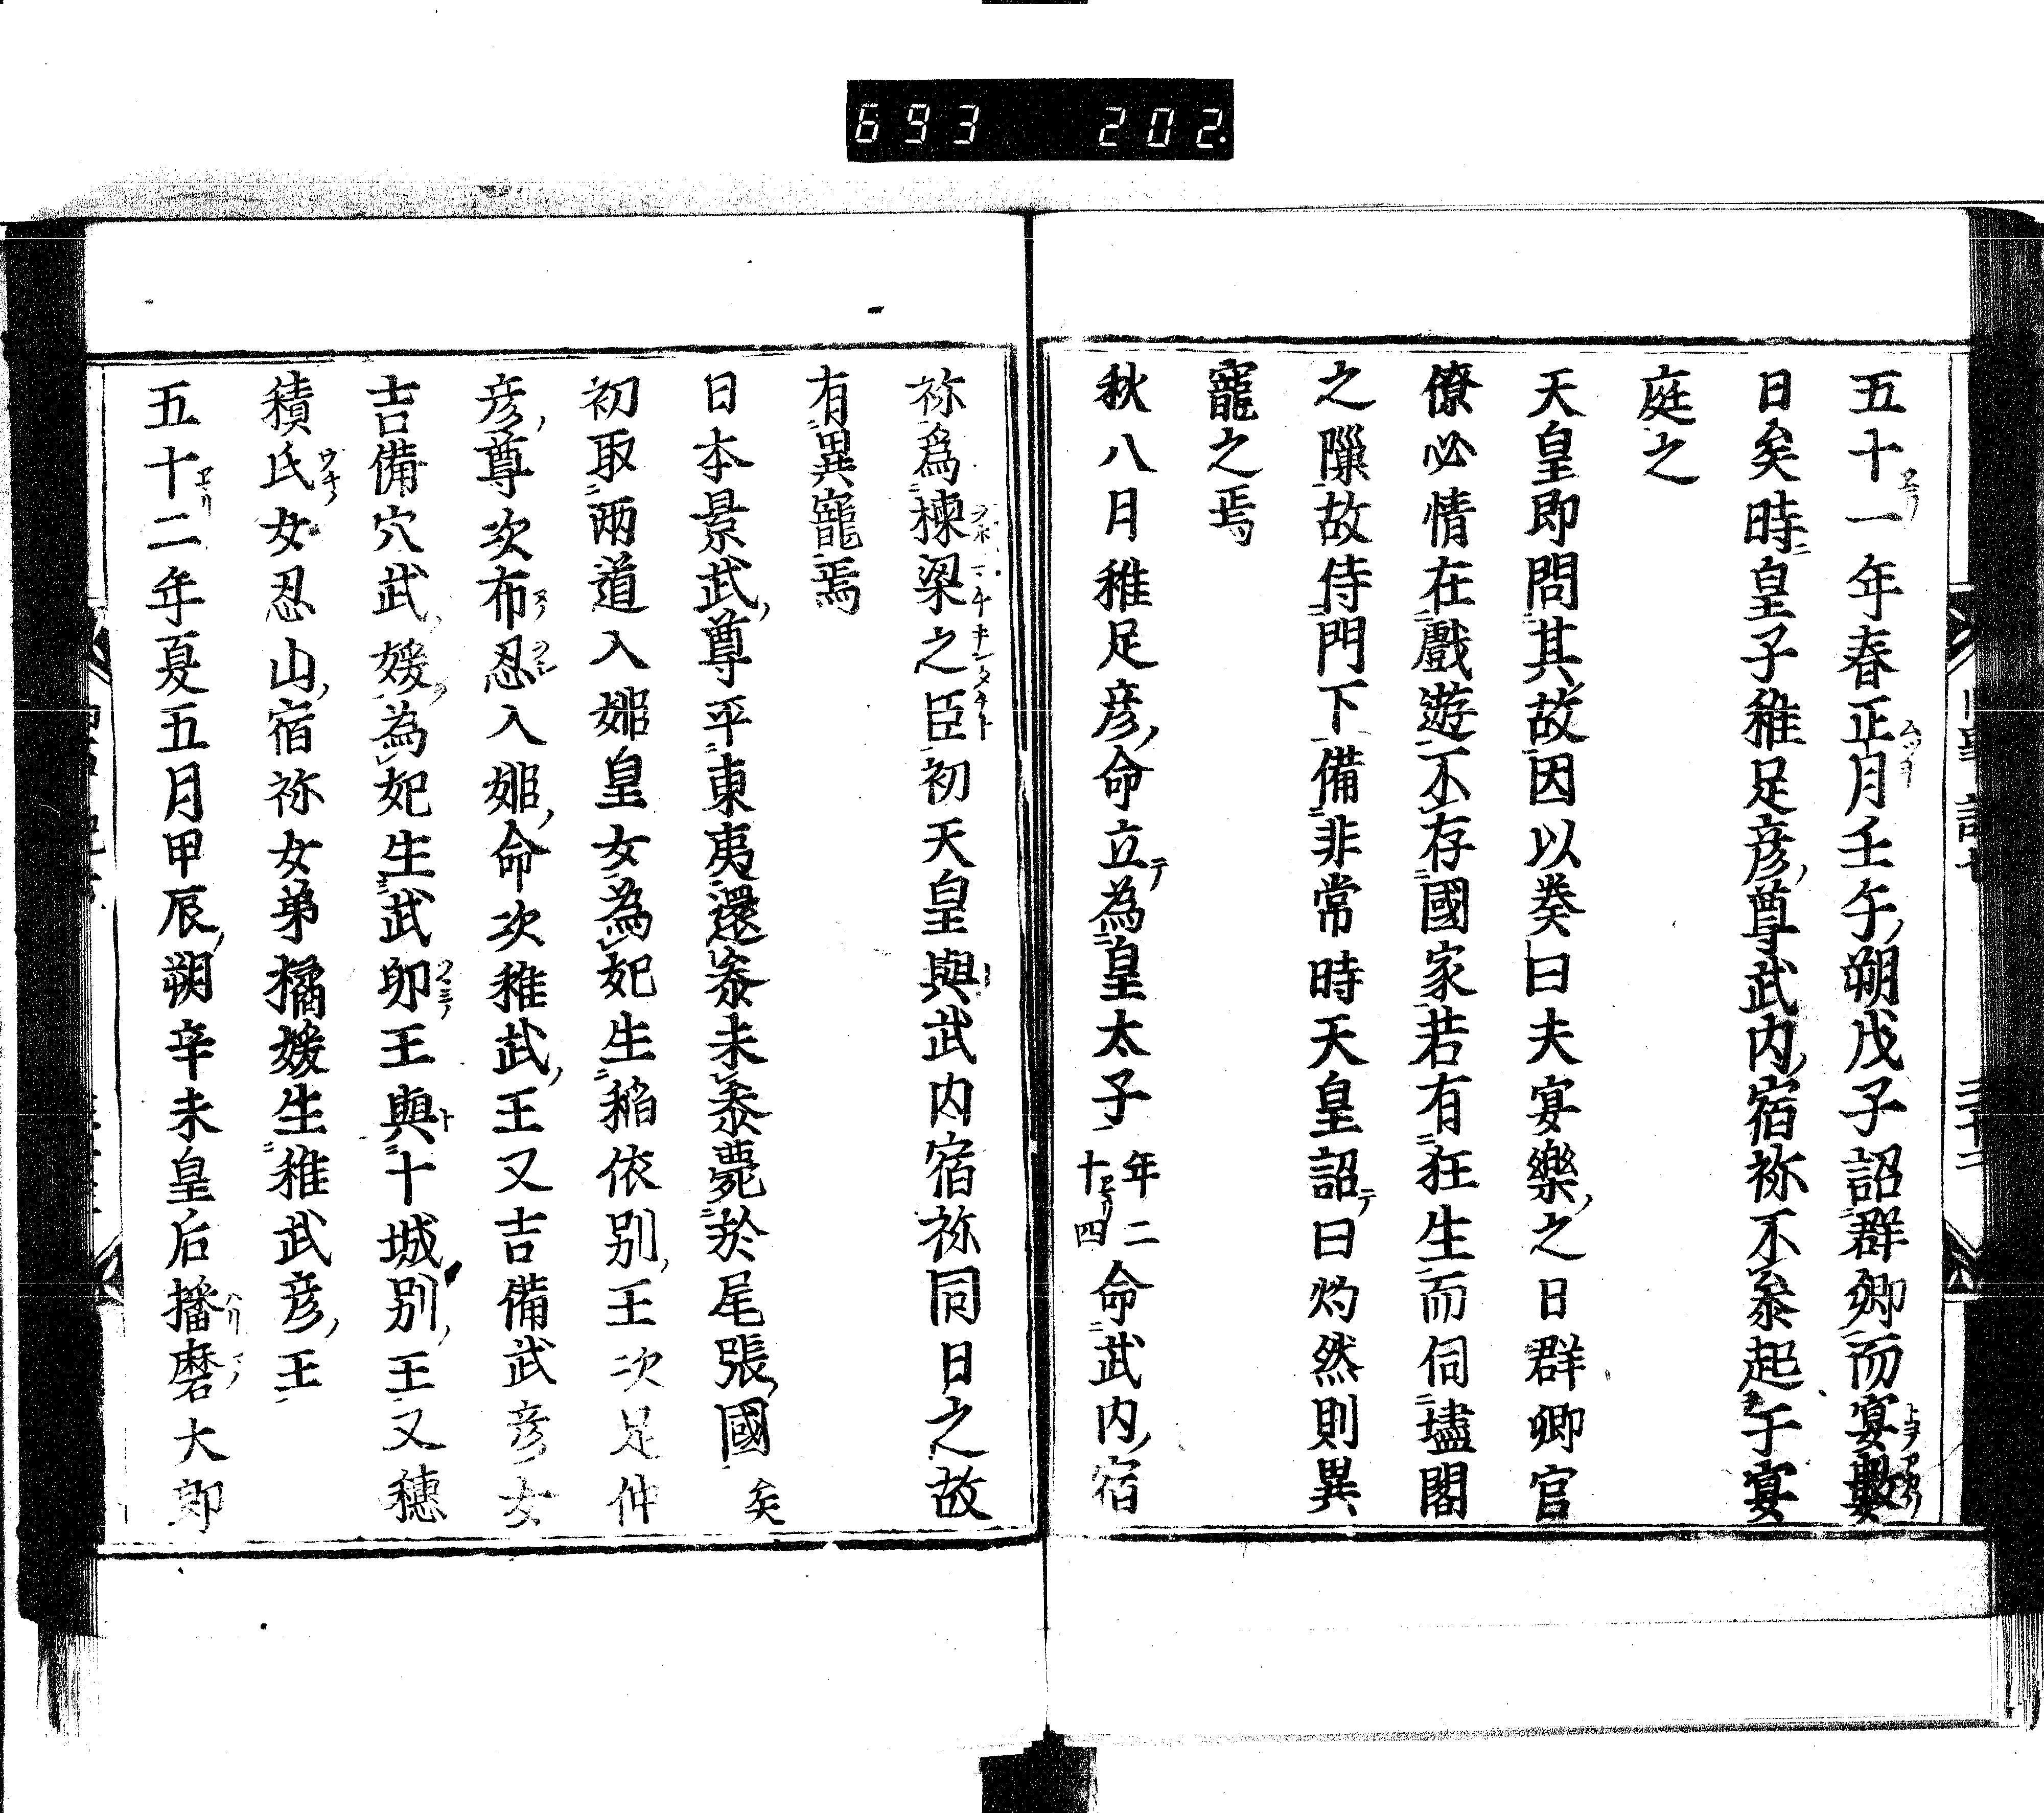 693 202.
五十一年春正月壬午朔戊子詔群卿而宴數
日矣時皇子稚足彦尊武内宿祢不叅起于宴
庭之
天皇即問其故因以奏曰夫宴樂之日群卿官
僚必情在戲遊不存國家若有狂生而伺壒閣
之隟故侍門下備非常時天皇詔曰灼然則異
寵之焉
秋八月稚足彦命立為皇太子 年二十四 命武内宿
祢爲棟梁之臣初天皇與武内宿祢同日之故
有異寵焉
日本景武尊平東夷還叅未叅薨於尾張國矣
初取兩道入姫皇女為妃生稲依别王次足仲
彦尊次布忍入姫命次稚武王又吉備武彦女
吉備穴武媛為妃生武卵王與十城别王又穗
積氏女忍山宿祢女弟橘媛生稚武彦王
五十二年夏五月甲辰朔辛未皇后播磨大郎